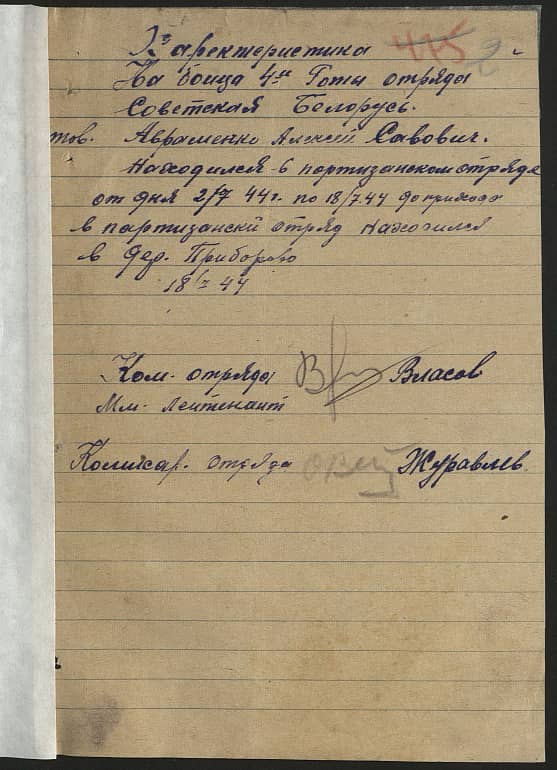 Характеристика 475 2
На бойца 4й Роты отряда
Советская Белорусь.
тов. Авраменко Алексей Савович.
Находился в партизанском отряде
от дня 2/7 44г. по 18/7 44 до прихода
в партизанский отряд находился
в дер. Приборово
18/7 44
Ком. отряда Власов
Мл. лейтенант
Комисар. отряда Журавлев.